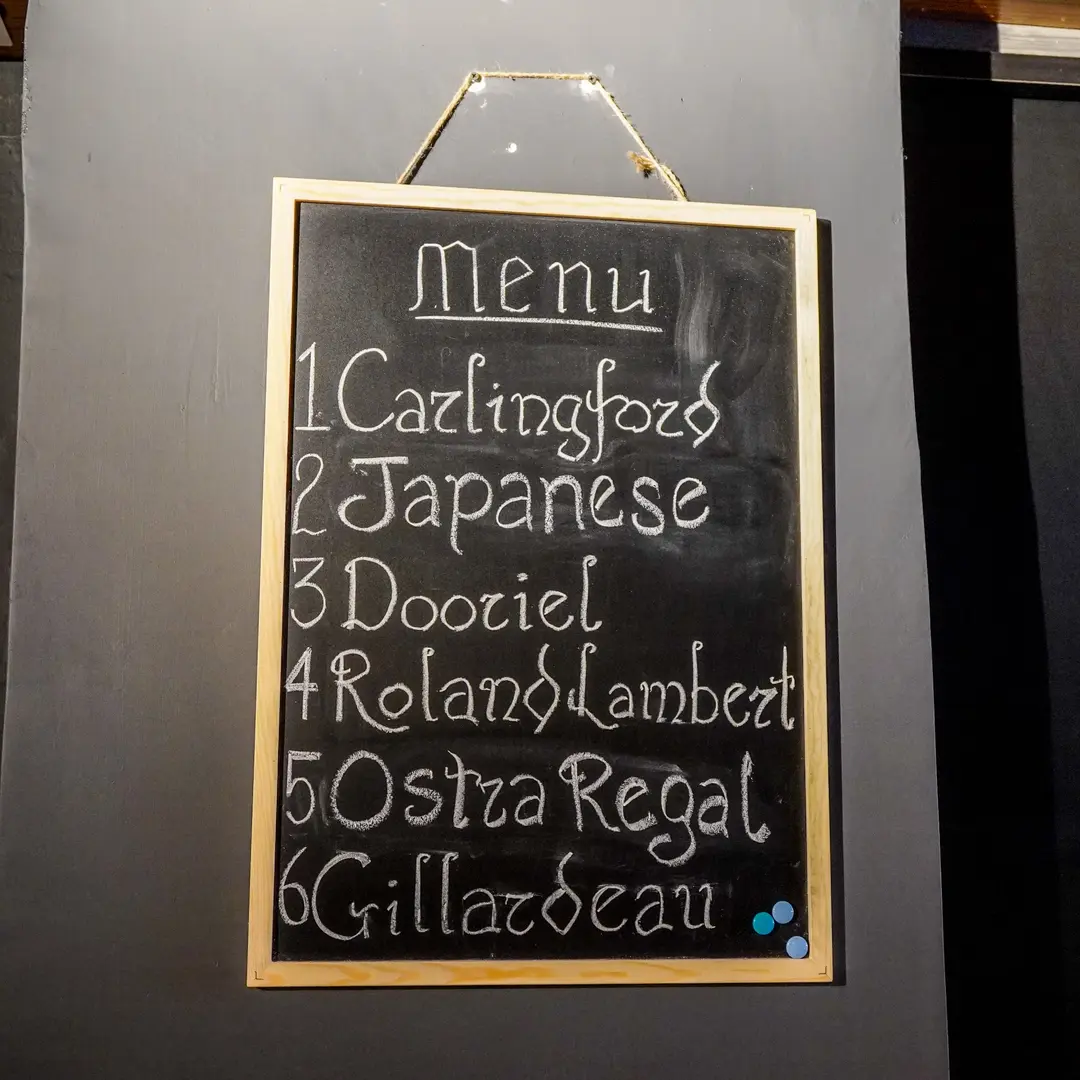 Menu
1 Carlingford
2 Japanese
3 Dooriel
4 Roland Lambert
5 Ostra Regal
6 Gillardeau